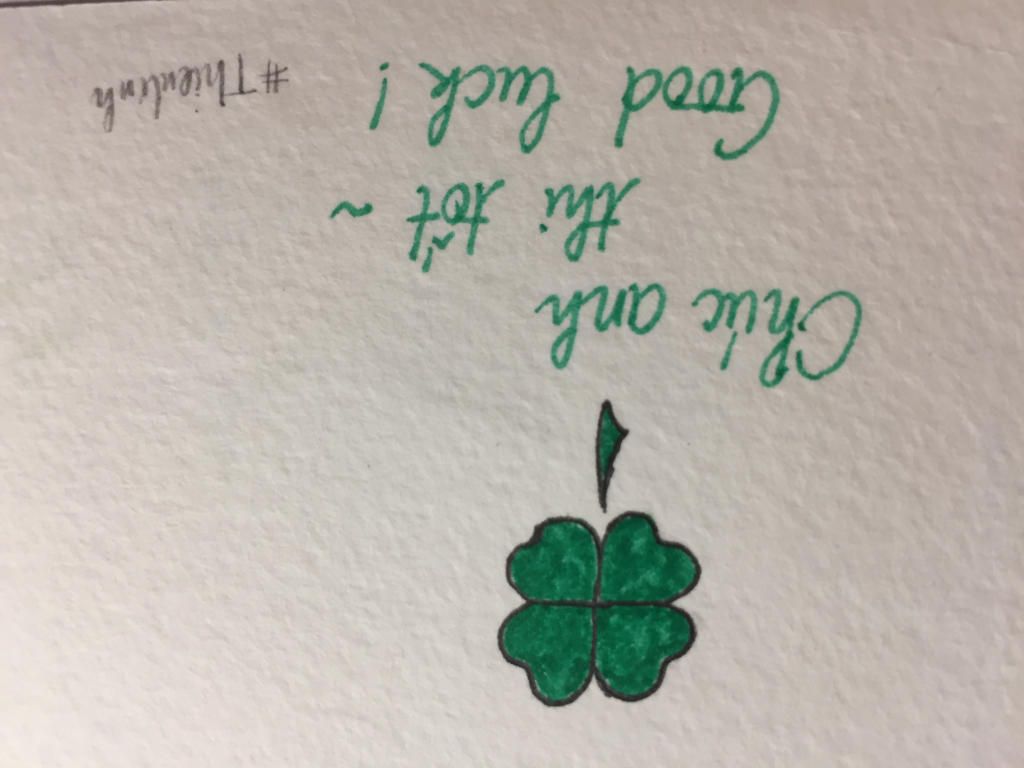 Chúc anh
thi tốt ~
Good luck !
#Thienlinh